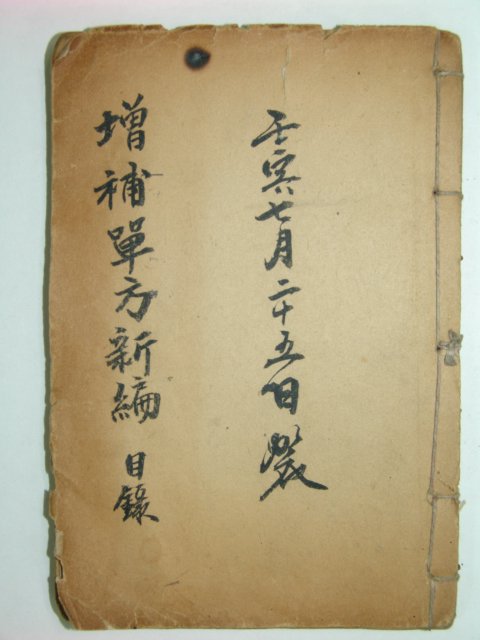 壬寅七月二十五日
增補單方新編 目錄